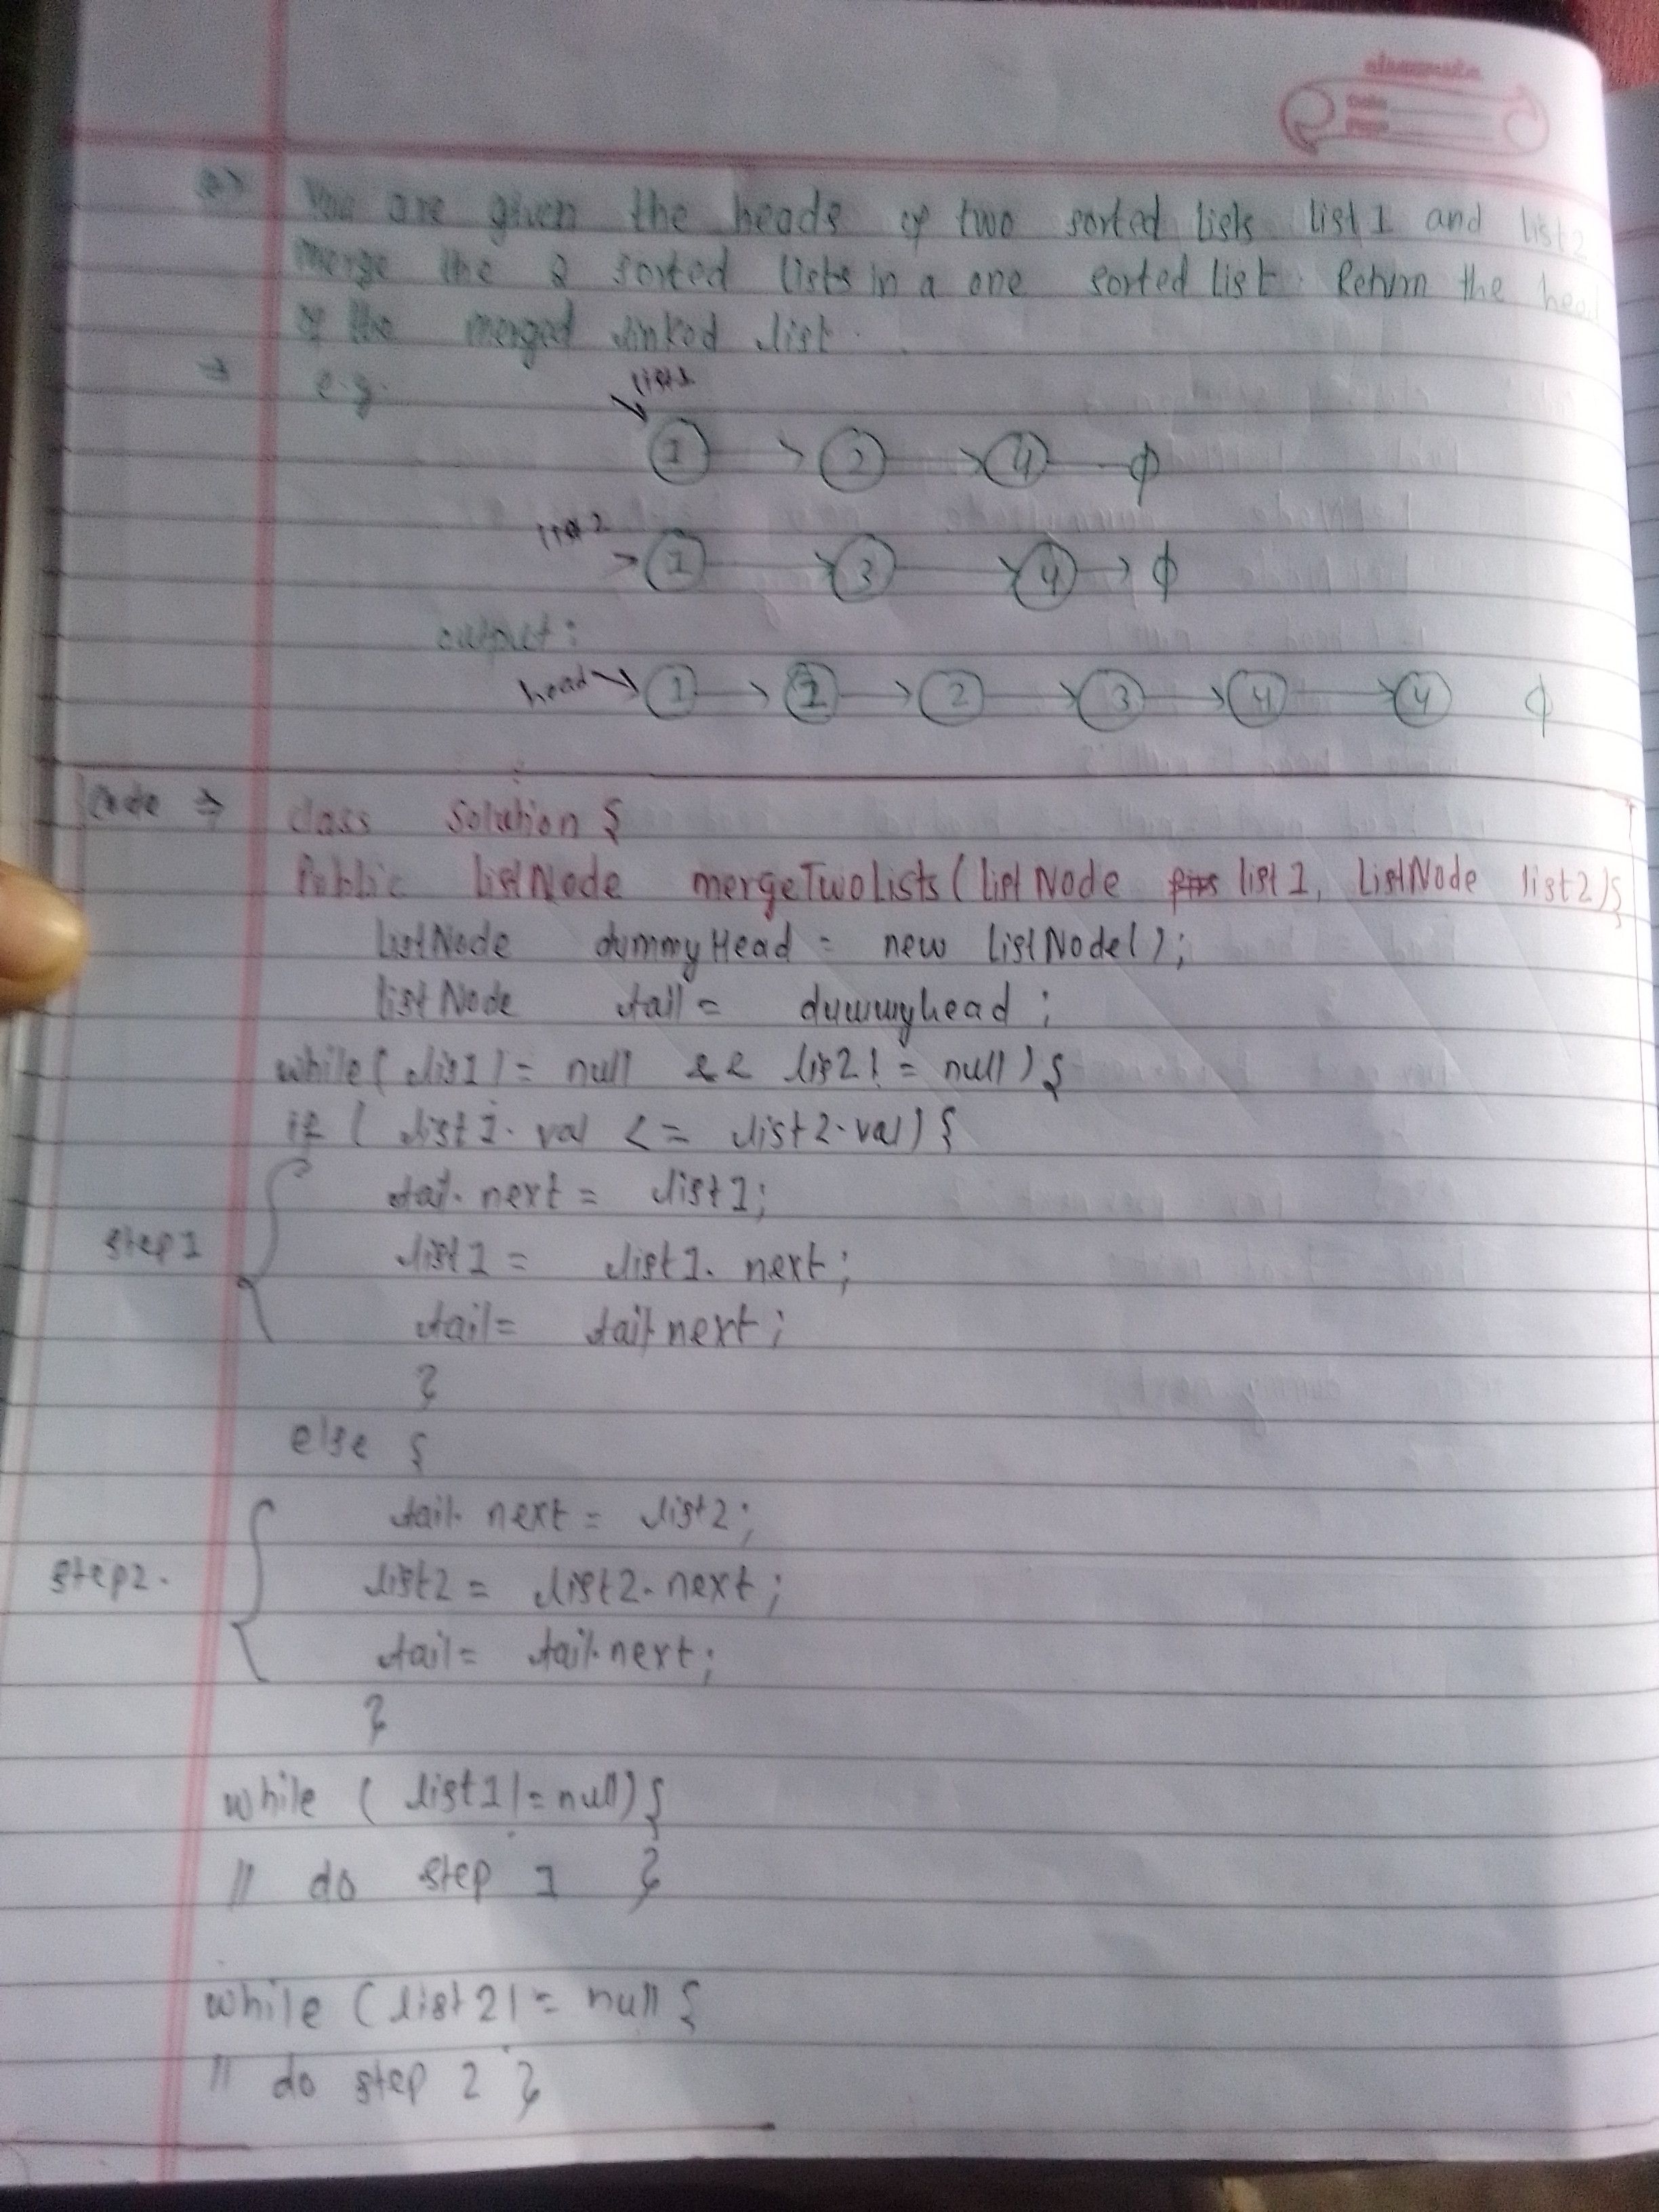 classmate
Date
Page
Q) You are given the heads of two sorted lists list 1 and list 2
merge the 2 sorted lists in a one sorted list. Return the head
of the merged linked list.
→ e.g.
list1
1 → 2 → 4 — φ
list 2
→ 1 → 3 → 4 → φ
output:
head → 1 → 1 → 2 → 3 → 4 → 4 φ
Code ⇒ class Solution {
Public listNode mergeTwoLists(list Node list 1, listNode list2){
listNode dummyHead = new listNode();
listNode tail = dummyhead ;
while( lis1 != null && lis2 != null ) {
if ( list 1. val <= list 2. val) {
tail. next = list 1;
step 1
list 1 = list 1. next ;
tail = tail. next ;
}
else {
tail. next = list2;
step2. list2 = list2. next ;
tail = tail. next ;
}
while ( list 1 != null) {
// do step 1 }
while ( list 2 != null {
// do step 2 }